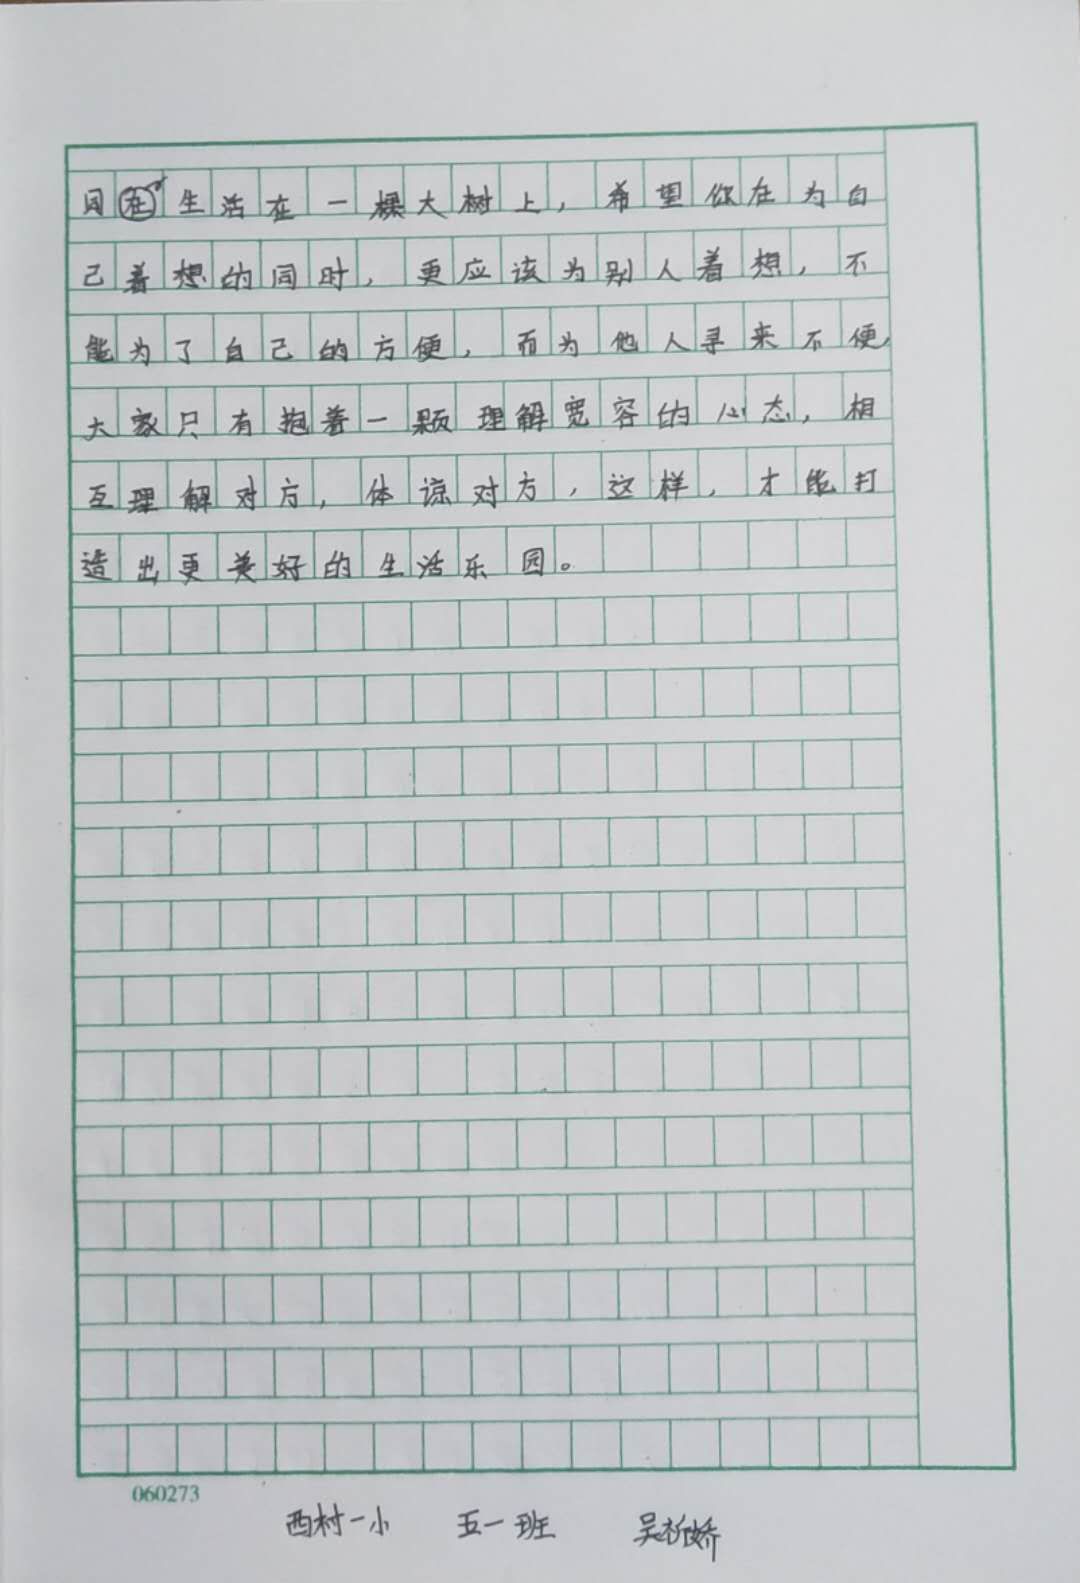 同生活在一棵大树上，希望你在为自
己着想的同时，更应该为别人着想，不
能为了自己的方便，而为他人寻来不便，
大家只有抱着一颗理解宽容的心态，相
互理解对方，体谅对方，这样，才能打
造出更美好的生活乐园。
060273
西村一小 五一班 吴祈娇